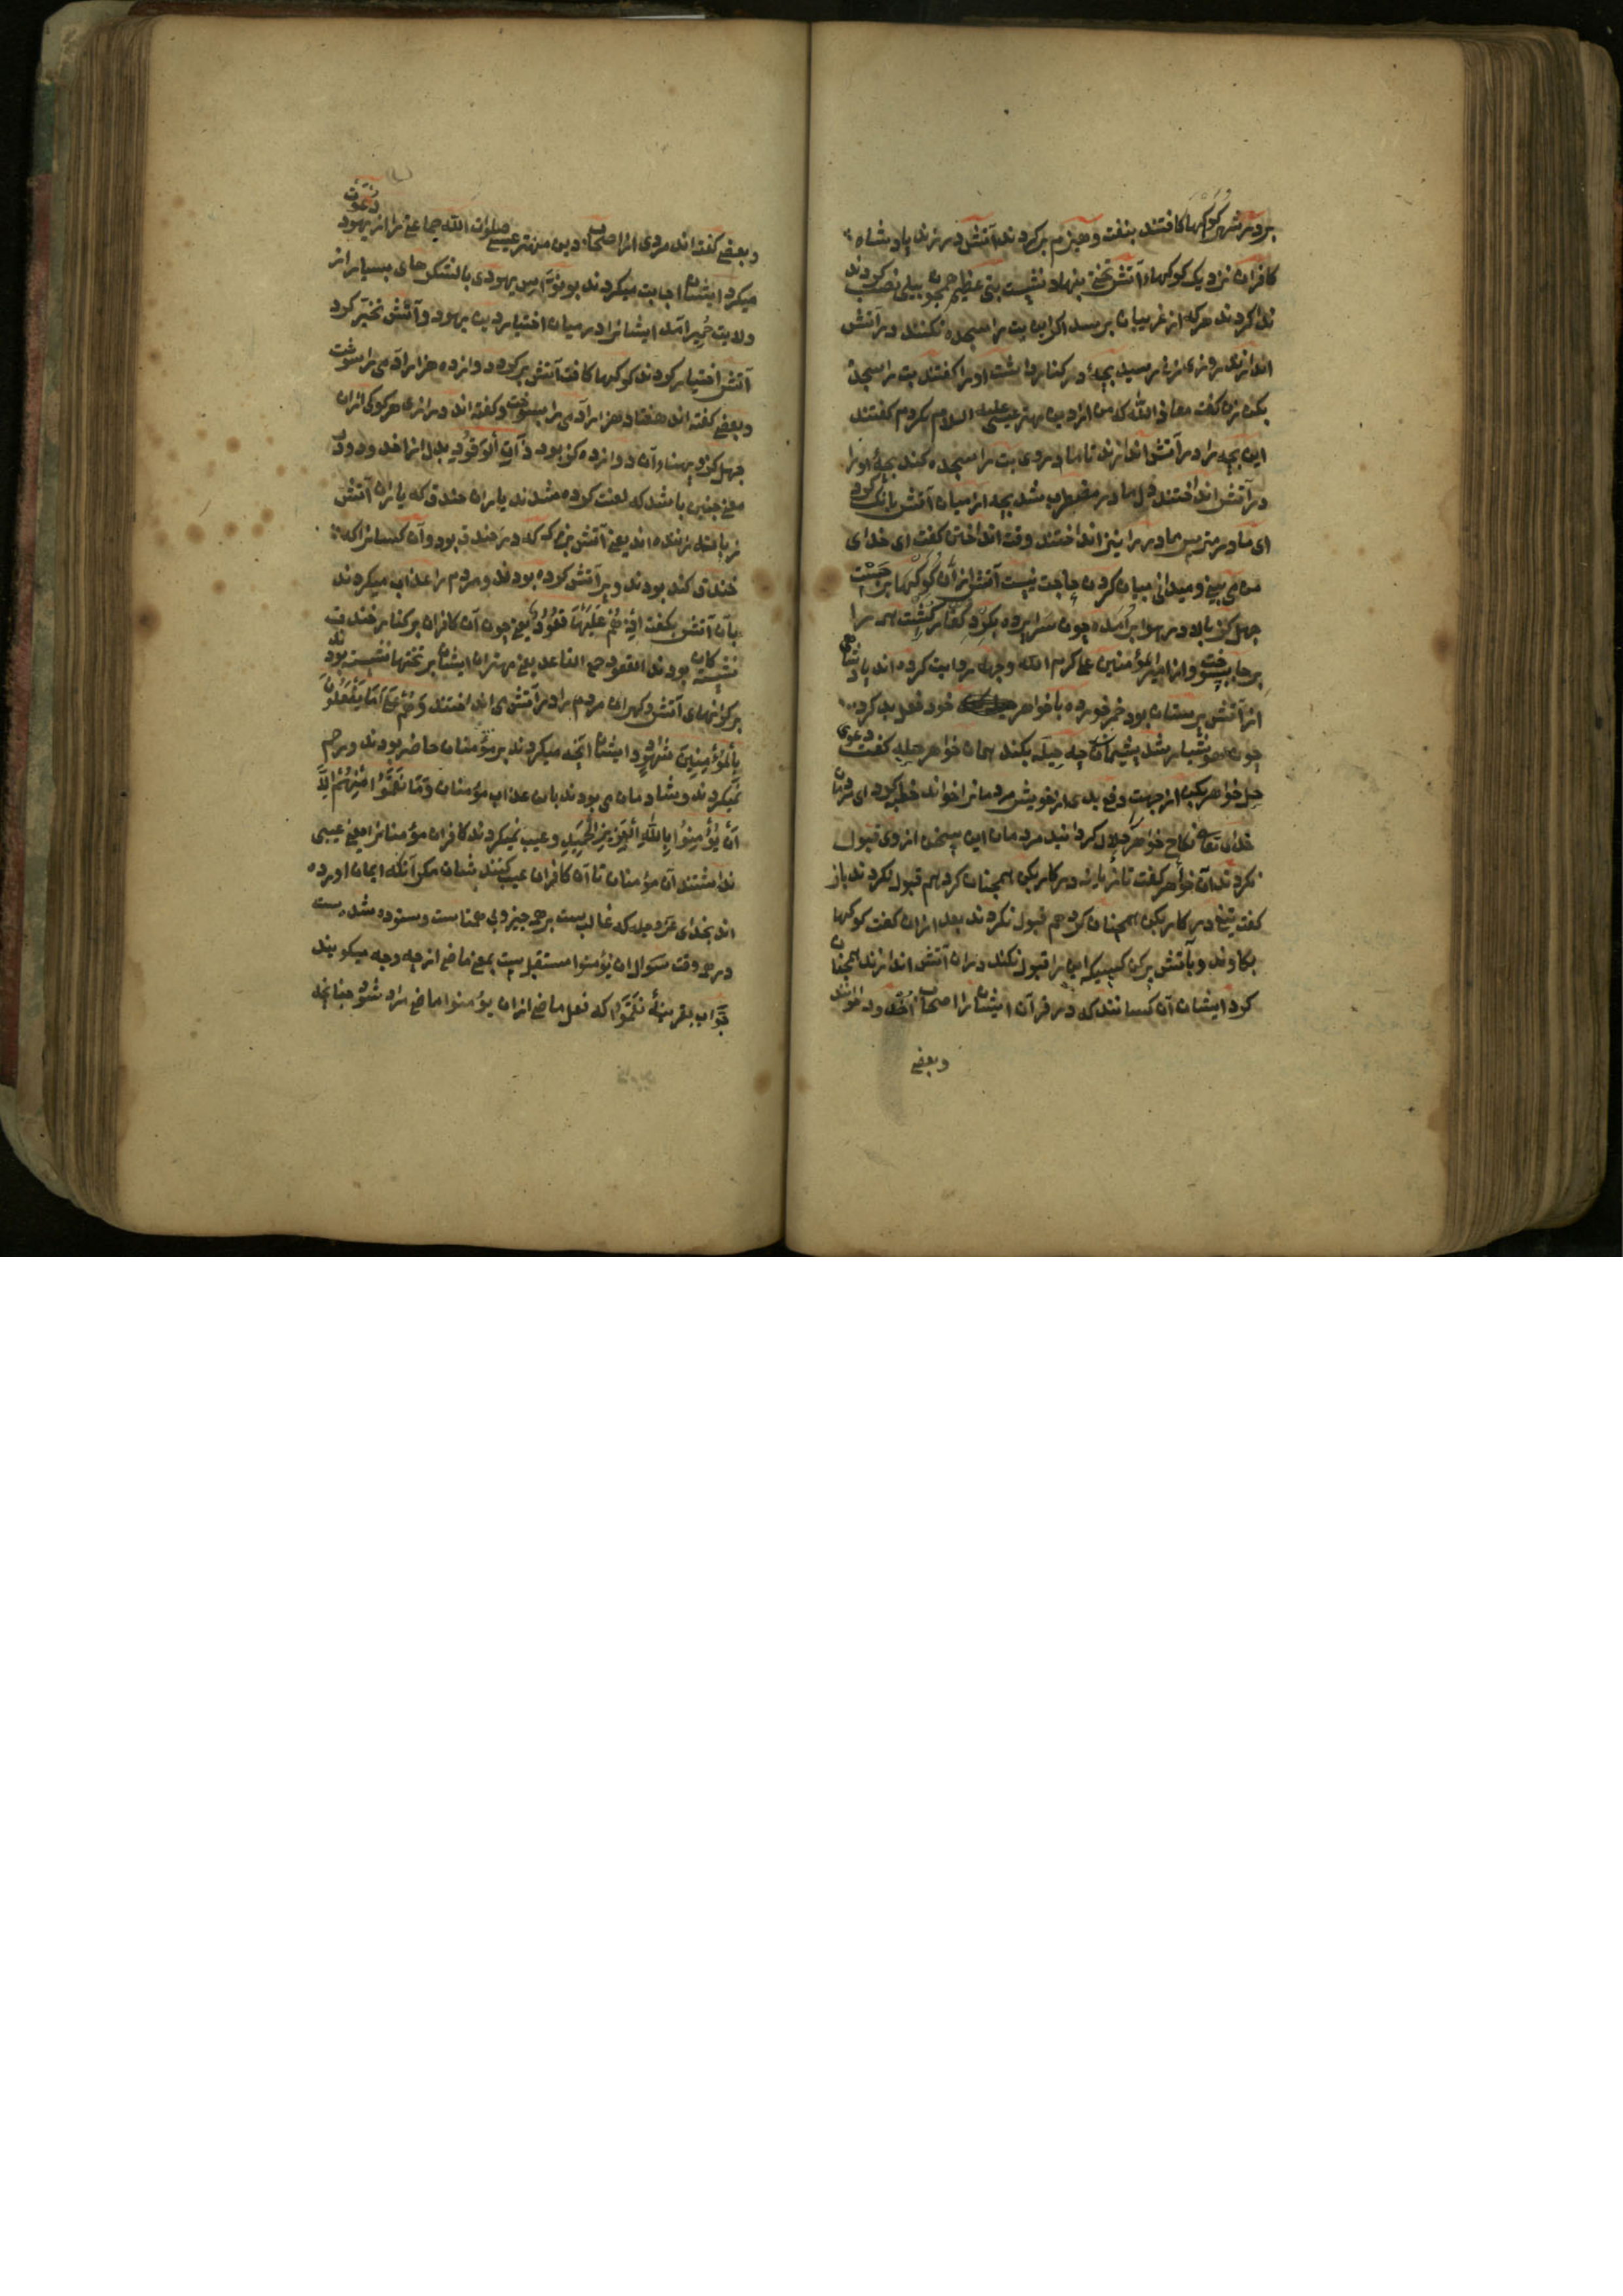 بر در شهر کوکها کافتند بنفت و هیزم پر کردند آتش در زدند پادشاه
کافران نزدیک کوکهاء آتش تختی بنهاد نشست بتی عظیم همچون پیلی نصب کردند
ندا کردند هر که از غریبان برسد اگر این بت را سجده نکنند در آتش
اندازند روزی زنی رسید بچهٔ در کنار داشت او را گفتند بت را سجده
بکن زن گفت معاذ الله که من از دین مهتر عیسی علیه السلام نکردم گفتند
این بچه را در آتش اندازند تا مادر وی بت را سجده کند بچهٔ او را
در آتش انداختند دل مادر مضطرب شد بچه از میان آتش بانگ کرد
ای مادر مترس مادر را نیز انداختند وقت انداختن گفت ای خدای
من می بینی و میدانی بیان کردن حاجت نیست آتش از آن کوکها بر جست
چهل کز بالا در هوا بر آمده چون سراپرده بکرد کفار کشت همه را
بر جا بسوخت و از امیر المؤمنین علی کرم الله وجهه روایت کرده اند پادشاهی
از آتش پرستان بود خمر خورده با خواهر خود فعل بد کرد
چون هوشیار شد پشیمان چه حیله بکند همان خواهر حیله گفت دعوی
حل خواهر بکن از جهت دفع بدی از خویش مردمانرا خواند خطبه کرد ای مردمان
خدای تعالی نکاح خواهر حلال کردانید مردمان این سخن از وی قبول
نکردند آن خواهر گفت تازیانه در کار بکن همچنان کرد هم قبول نکردند باز
گفت تیغ در کار بکن همچنان کرد هم قبول نکردند بعد ازان گفت کوکها
بکاوند و بآتش پر کن کسیکه این را قبول نکند دران آتش اندازند همچنان
کرد ایشان آن کسانند که در قرآن ایشانرا اصحاب اخدود خوانند
وبعضی
وبعضی گفته اند مردی از اصحاب دین مهتر عیسی صلوات الله جماعتی را از یهود دعوت
میکرد ایشان اجابت میکردند بو نواس یهودی با لشکرهای بسیار از
ولایت حمیر آمد ایشانرا در میان اختیار دین یهود و آتش مخیر کرد
آتش اختیار کردند کوکها کافت آتش پر کرد دوازده هزار آدمی را سوخت
وبعضی گفته اند هفتاد هزار آدمی را بسوخت و گفته اند درازی هر کوکی ازان
چهل کز و پهناء آن دوازده کز بود ذات الوقود بدل از اخدود
معنی چنین باشد که لعنت کرده شدند یاران خندق که یاران آتش
زبانه زننده اند یعنی آتش بزرک که در خندق بود و آن کسانرا که
خندق کنده بودند و پر آتش کرده بودند و مردم را عذاب میکردند
بآن آتش بکفت اذ هم علیها قعود یعنی چون آن کافران بر کنار خندق
نشسته کان بودند القعود جمع القاعد یعنی مهتران ایشان بر تختها نشسته بودند
بر کرانهای آتش و کهران مردم را در آتش می انداختند وهم علی ما یفعلون
بالمؤمنین شهود و ایشان آنچه میکردند بر مؤمنان حاضر بودند و رحم
نمیکردند و شادمان می بودند بان عذاب مؤمنان وما نقموا منهم الا
ان یؤمنوا بالله العزیز الحمید و عیب نمیکردند کافران مؤمنانرا یعنی عیبی
نداشتند آن مؤمنان تا آن کافران عیب کنند شان مکر آنکه ایمان آورده
اند بخدای عز و جل که غالب ست بر همه چیز و بی همتاست و ستوده شده ست
در هر وقت سوال ان یؤمنوا مستقبل ست بمعنی ماضی از چه وجه میکویند
جواب بقرینهٔ نقموا که فعل ماضی ازان یؤمنوا ماضی مراد شود چنانچه